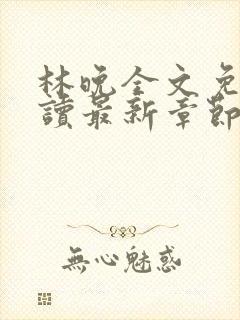 林晚全文免
讀最新章節
無心魅惑